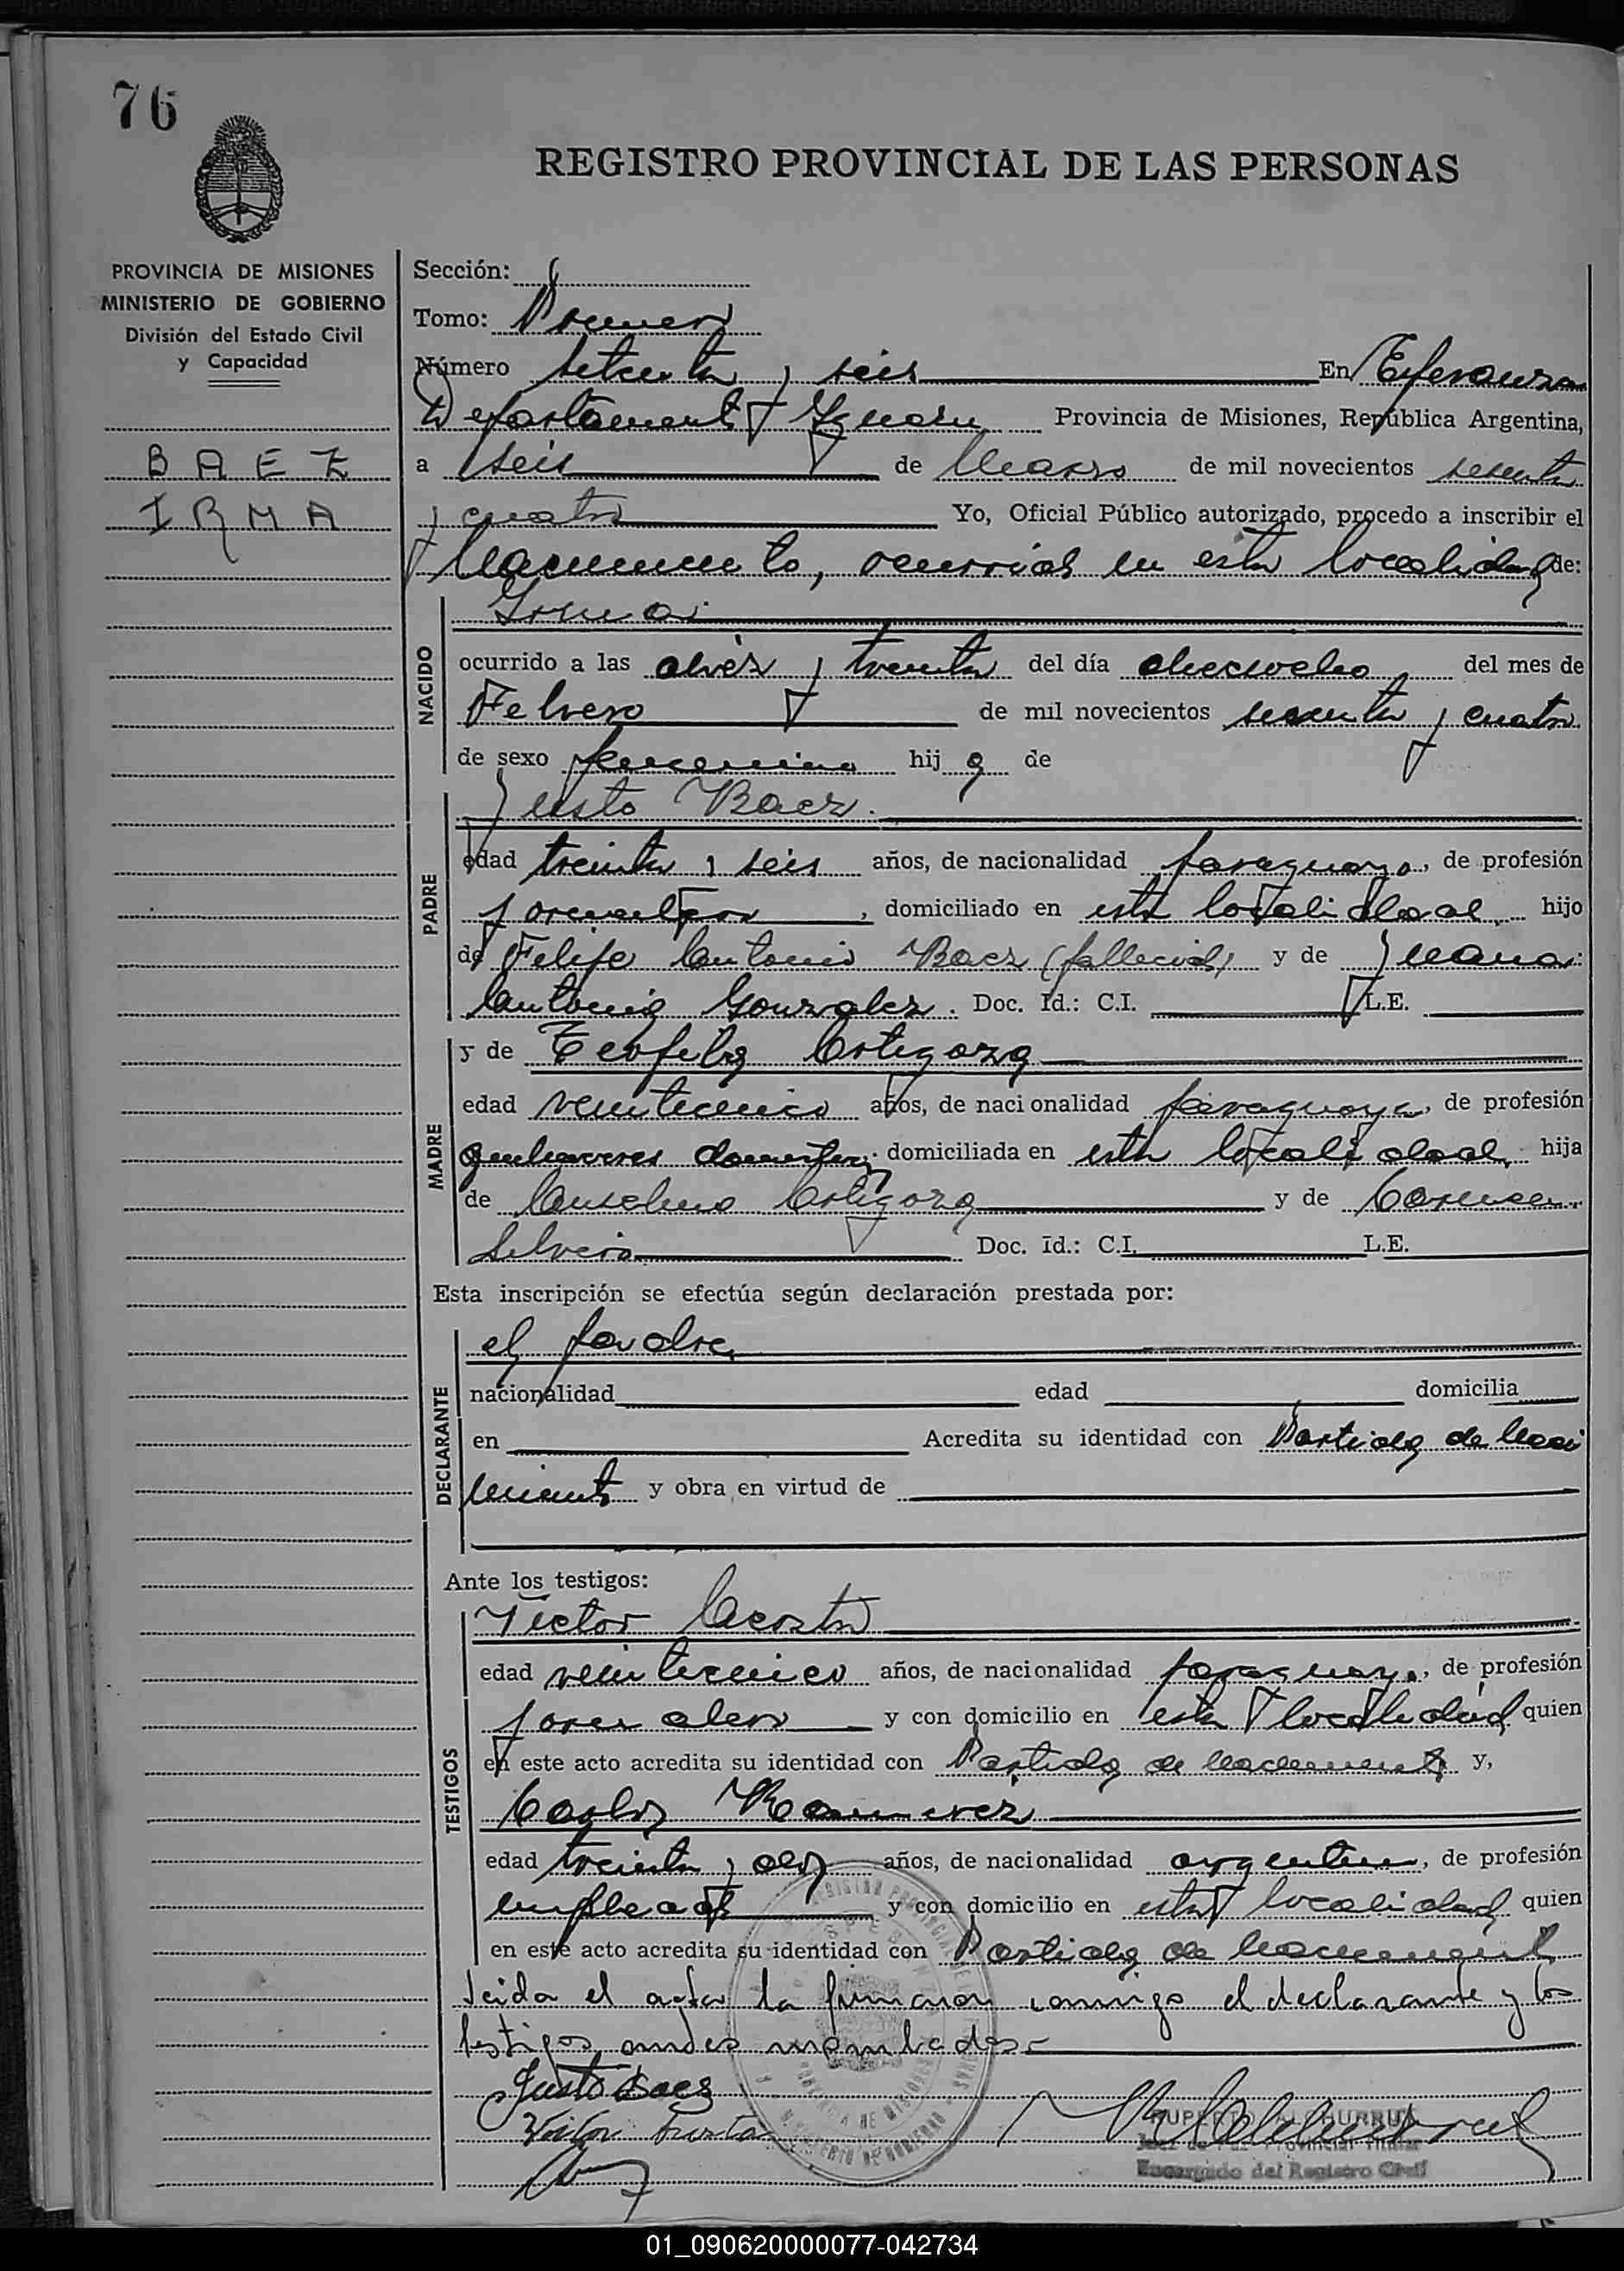 76
REGISTRO PROVINCIAL DE LAS PERSONAS
PROVINCIA DE MISIONES
MINISTERIO DE GOBIERNO
División del Estado Civil
y Capacidad
BAEZ
IRMA
Sección:
Tomo: Primero
Número setenta y seis En Esperanza
Departamento Iguazu Provincia de Misiones, República Argentina,
a seis de Marzo de mil novecientos sesenta
y cuatro Yo, Oficial Público autorizado, procedo a inscribir el
Nacimiento, ocurrido en esta localidad de:
NACIDO
Irma
ocurrido a las diez y treinta del día dieciocho del mes de
Febrero de mil novecientos sesenta y cuatro
de sexo femenino hija de
PADRE
Justo Baez.
edad treinta y seis años, de nacionalidad paraguayo, de profesión
jornalero, domiciliado en esta localidad, hijo
de Felipe Antonio Baez (fallecido) y de Juana
Antonia Gonzalez. Doc. Id.: C.I. L.E.
MADRE
y de Teofila Ortigoza
edad veinticinco años, de nacionalidad paraguaya, de profesión
quehaceres domesticos domiciliada en esta localidad, hija
de Anselmo Ortigoza y de Carmen
Silveira Doc. Id.: C.I. L.E.
Esta inscripción se efectúa según declaración prestada por:
DECLARANTE
el padre
nacionalidad edad domicilia
en Acredita su identidad con Partida de Naci
miento y obra en virtud de
Ante los testigos:
TESTIGOS
Victor Acosta
edad veinticinco años, de nacionalidad paraguayo, de profesión
jornalero y con domicilio en esta localidad quien
en este acto acredita su identidad con Partida de Nacimiento y,
Carlos Ramirez
edad treinta y dos años, de nacionalidad argentino, de profesión
empleado y con domicilio en esta localidad quien
en este acto acredita su identidad con Partida de Nacimiento
Leida el acta la firmaron conmigo el declarante y los
testigos nombrados-
Justo Baez
Encargado del Registro Civil
01_090620000077-042734